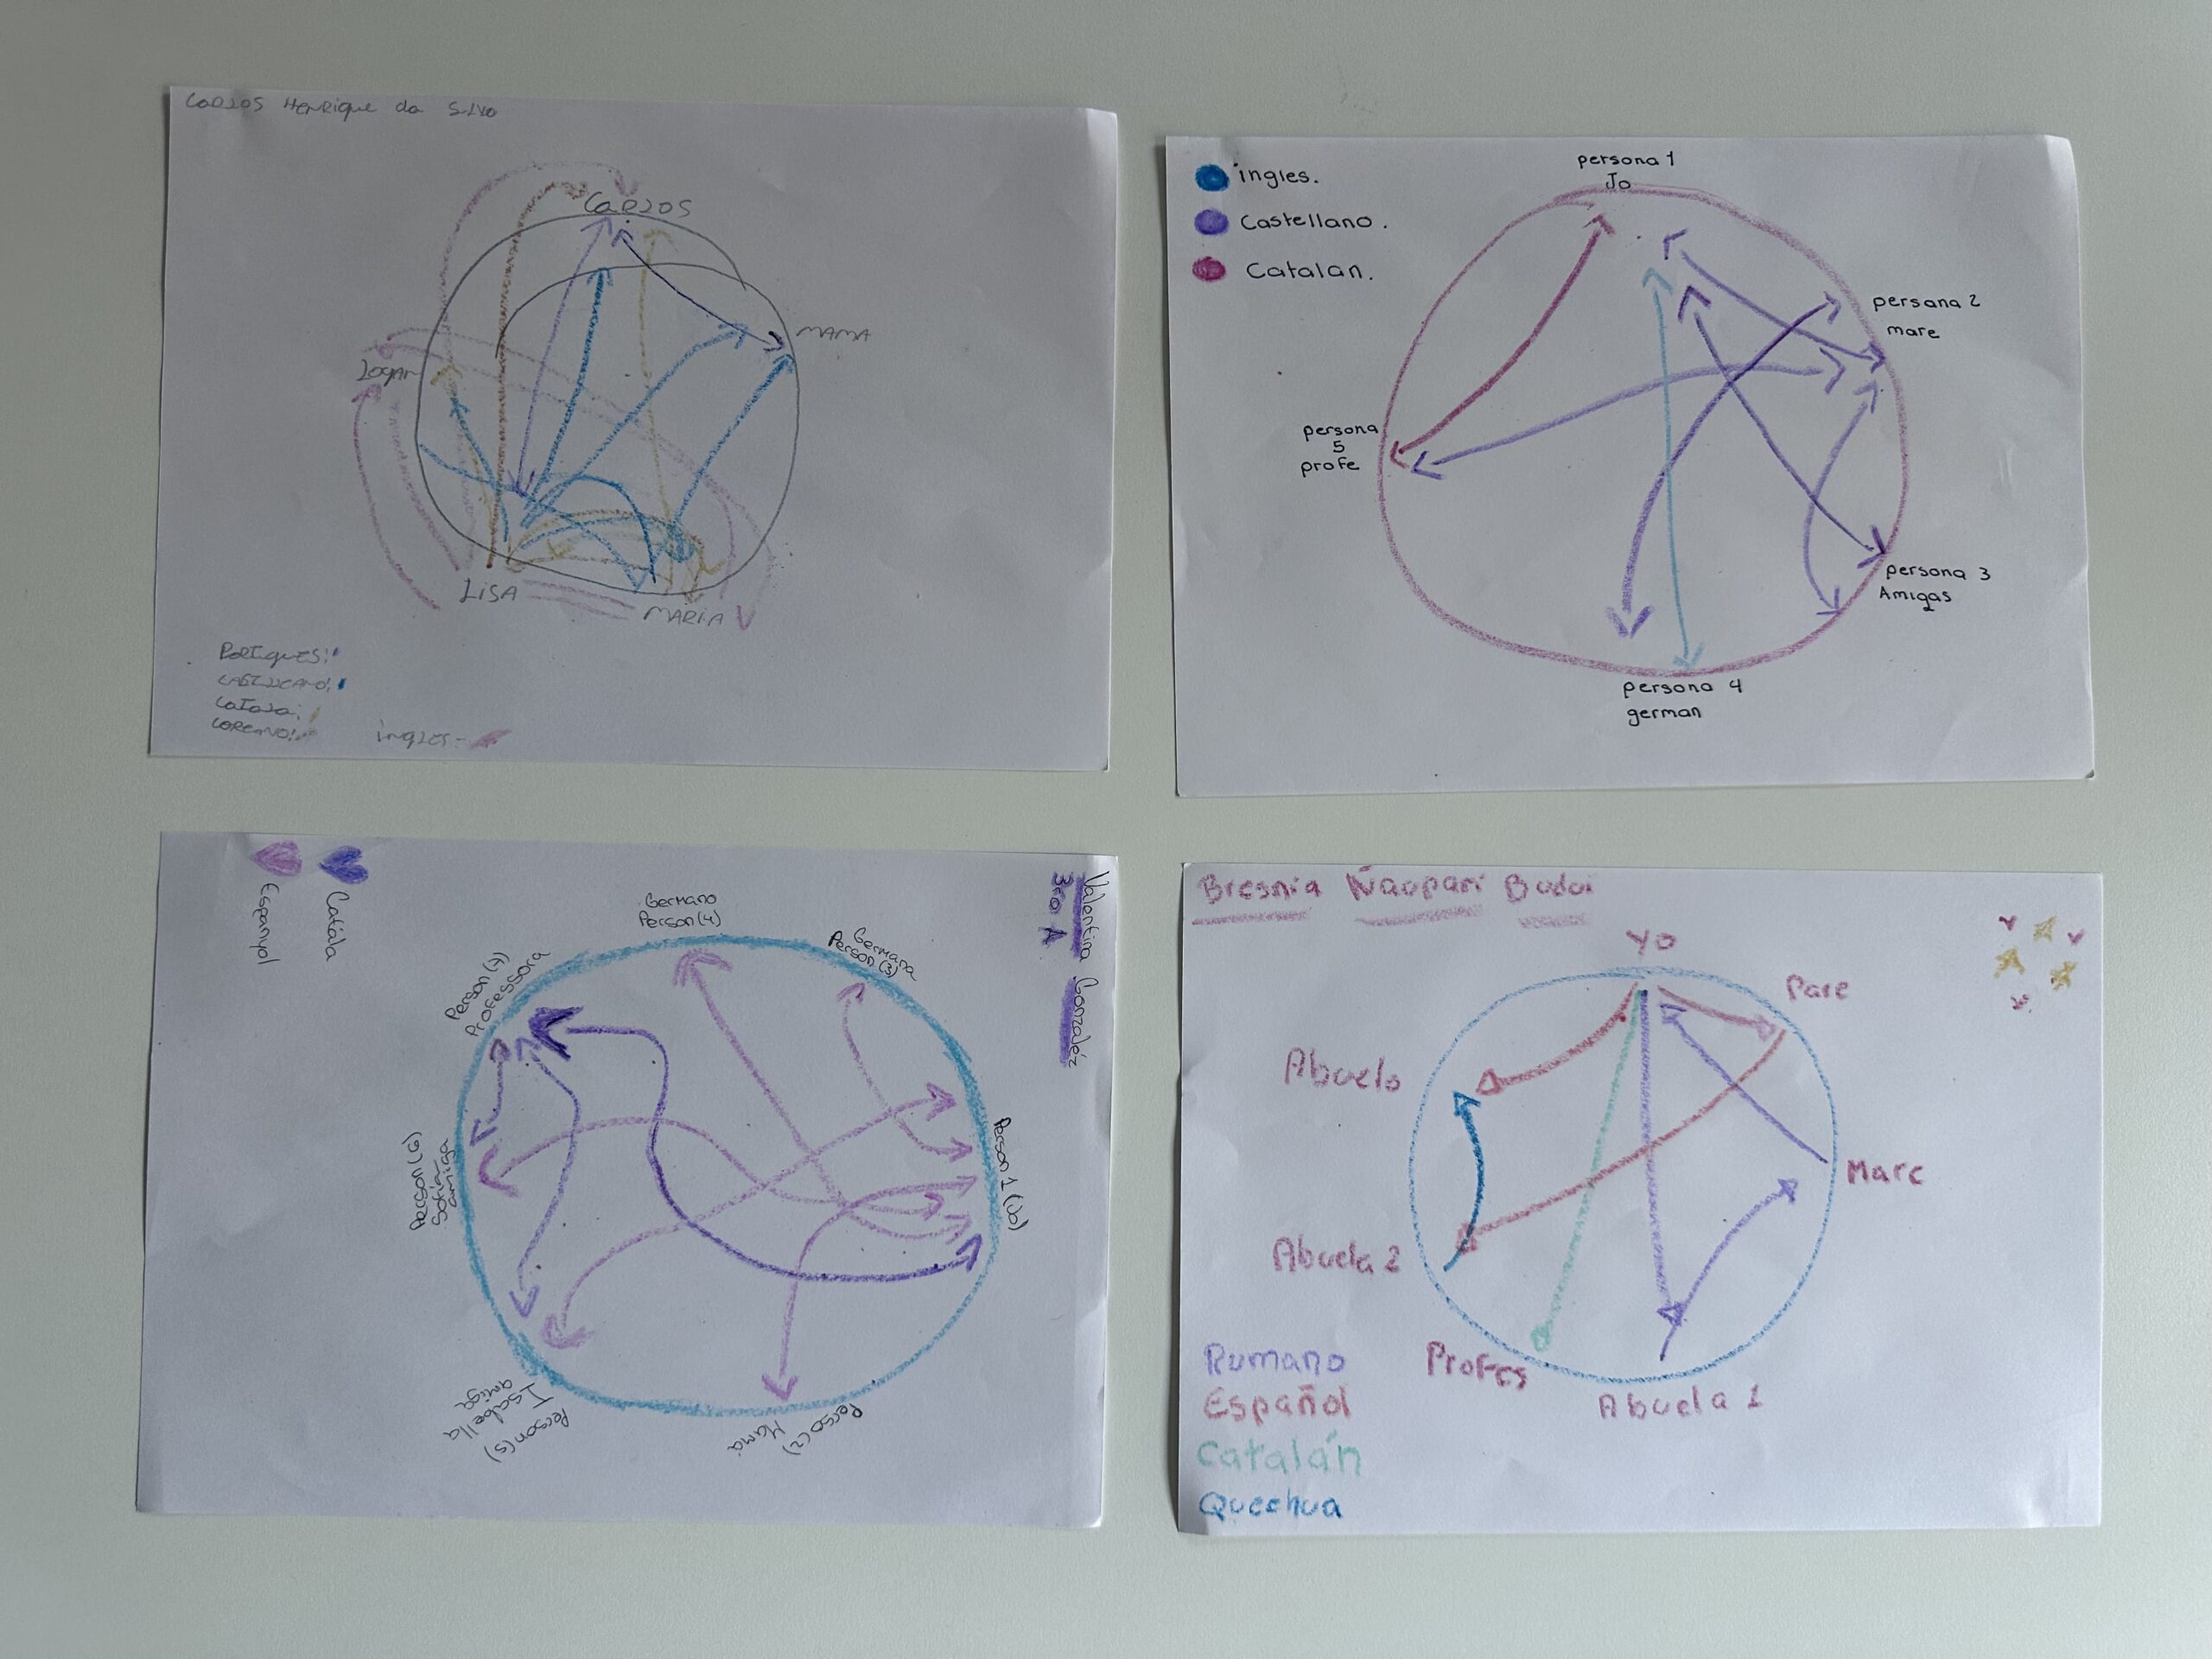 Carlos Henrique da Silva
Carlos
MAMA
Logan
LISA
MARIA
Portiques:
Catala:
Coreano:
ingles-
ingles.
Castellano.
Catalan.
persona 1
Jo
persana 2
mare
persona 3
Amigas
persona 4
german
persona
5
profe
Valentina Gonzaléz
3ro A
Catála
Espanyol
Germano
Person(4)
Germana
Person(3)
Person(7)
Professora
Person 1 (Jo)
Person(6)
Sofia
amiga
Person(5)
Isabella
amiga
Perso(2)
Mama
Bresnia Ñaupari Budoi
Yo
Pare
Abuelo
Mare
Abuela 2
Profes
Abuela 1
Rumano
Español
Catalán
Quechua